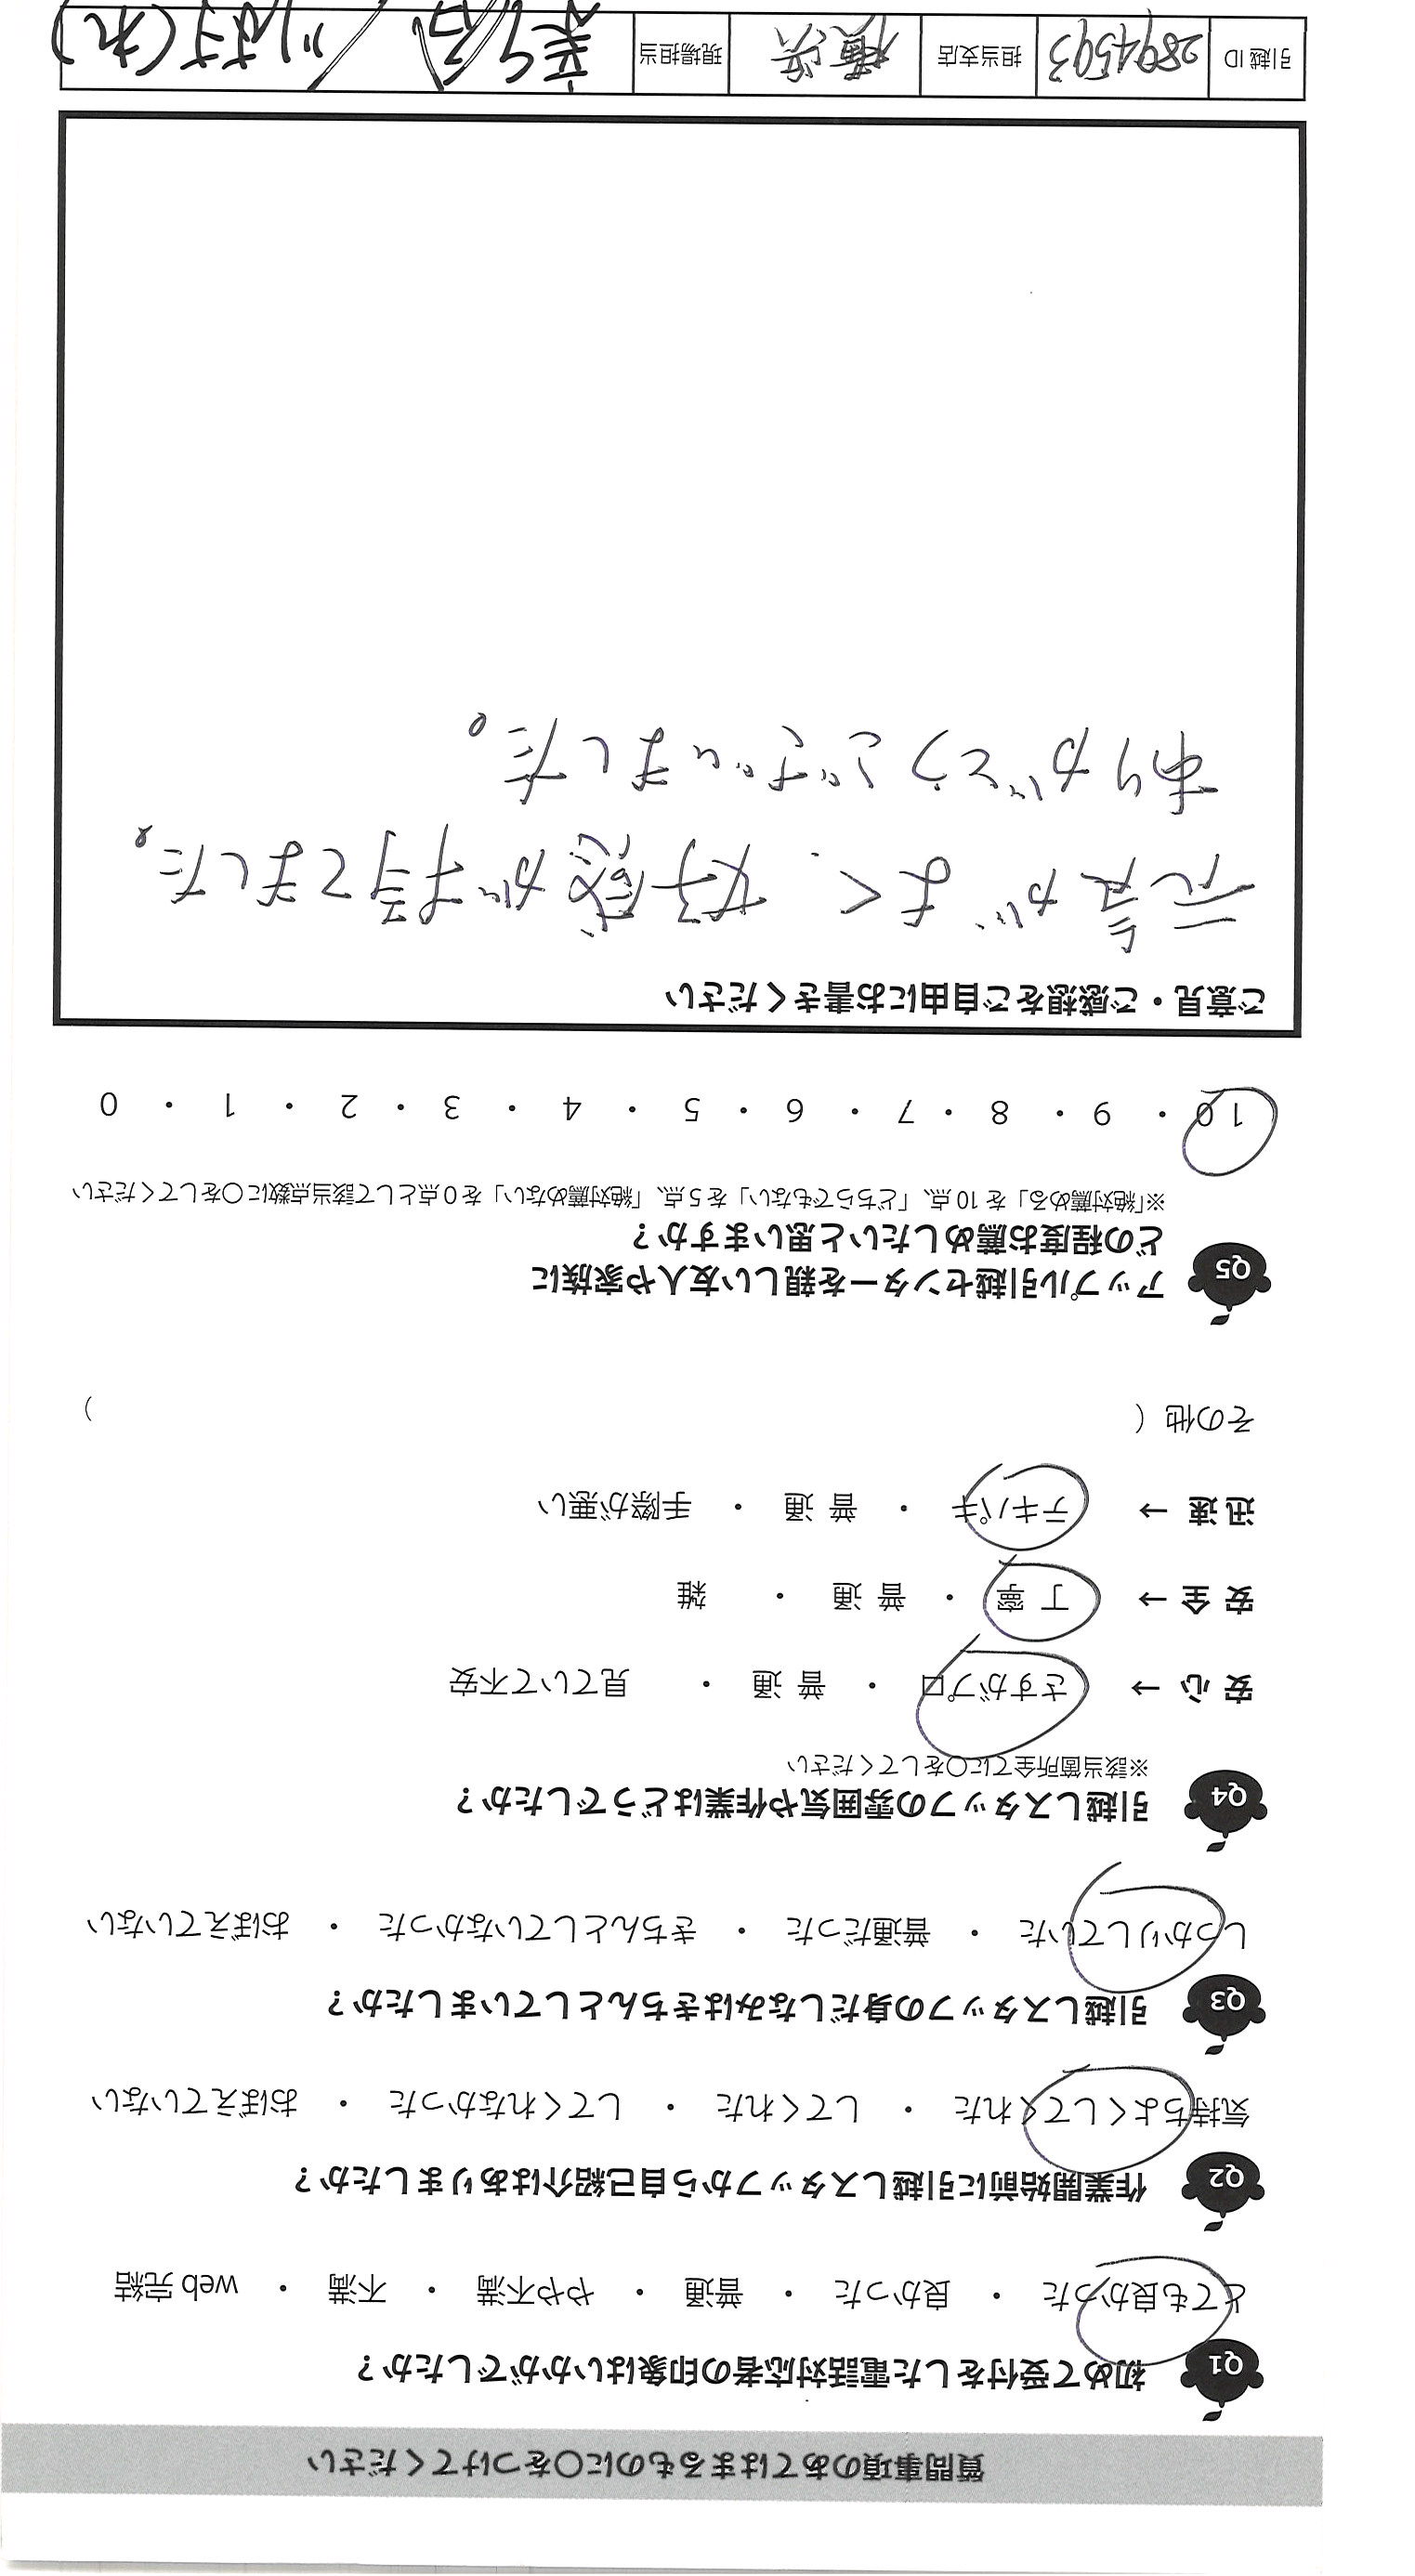 質問事項のあてはまるものに○をつけてください
Q1 初めて受付をした電話対応者の印象はいかがでしたか？
とても良かった ・ 良かった ・ 普通 ・ やや不満 ・ 不満 ・ web 完結
Q2 作業開始前に引越しスタッフから自己紹介はありましたか？
気持ちよくしてくれた ・ してくれた ・ してくれなかった ・ おぼえていない
Q3 引越しスタッフの身だしなみはきちんとしていましたか？
しっかりしていた ・ 普通だった ・ きちんとしていなかった ・ おぼえていない
Q4 引越しスタッフの雰囲気や作業はどうでしたか？
※該当箇所全てに○をしてください
安 心 → さすがプロ ・ 普 通 ・ 見ていて不安
安 全 → 丁 寧 ・ 普 通 ・ 雑
迅 速 → テキパキ ・ 普 通 ・ 手際が悪い
その他 （ ）
Q5 アップル引越センターを親しい友人や家族に
どの程度お薦めしたいと思いますか？
※「絶対薦める」を 10 点、「どちらでもない」を 5 点、「絶対薦めない」を 0 点として該当点数に○をしてください
10 ・ 9 ・ 8 ・ 7 ・ 6 ・ 5 ・ 4 ・ 3 ・ 2 ・ 1 ・ 0
ご意見・ご感想をご自由にお書きください
元気がよく、好感が持てました。
ありがとうございました。
引越 ID 2894593 担当支店 横浜 現場担当